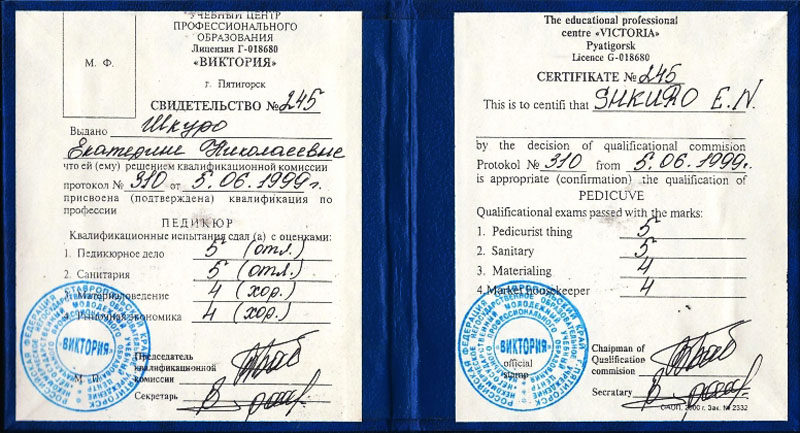 УЧЕБНЫЙ ЦЕНТР
ПРОФЕССИОНАЛЬНОГО
ОБРАЗОВАНИЯ
Лицензия Г-018680
«ВИКТОРИЯ»
М. Ф.
г. Пятигорск
СВИДЕТЕЛЬСТВО № 245
Выдано Шкуро
Екатерине Николаевне
что ей (ему) решением квалификационной комиссии
протокол № 310 от 5.06.1999г.
присвоена (подтверждена) квалификация по
профессии
ПЕДИКЮР
Квалификационные испытания сдал (а) с оценками:
1. Педикюрное дело 5 (отл.)
2. Санитария 5 (отл.)
3. Материаловедение 4 (хор.)
4. Рыночная экономика 4 (хор.)
Председатель
квалификационной
комиссии
М. П.
Секретарь
«ВИКТОРИЯ»
The educational professional
centre «VICTORIA»
Pyatigorsk
Licence G-018680
CERTIFIKATE № 245
This is to certifi that SHKURO E.N.
by the decision of qualificational commision
Protokol № 310 from 5.06.1999г.
is appropriate (confirmation) the qualification of
PEDICUVE
Qualificational exams passed with the marks:
1. Pedicurist thing 5
2. Sanitary 5
3. Materialing 4
4. Market housekeeper 4
Chairman of
Qualification
commision
official
stamp
Secratary
«ВИКТОРИЯ»
САОП. 2000 г. Зак. № 2332